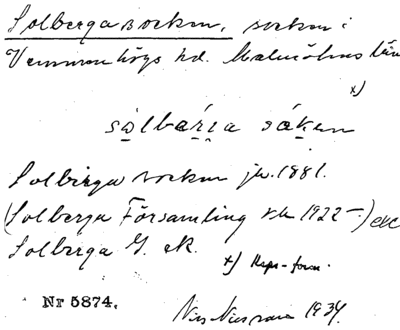 Solberga socken, socken i
Vemmenhögs hd. Malmöhus län
x)
sòlbaría sákən
Solberga socken jb. 1881.
(Solberga Församling 1922-) etc
Solberga G. ek.
x) Rspr-form.
Nr 5874.
1934.